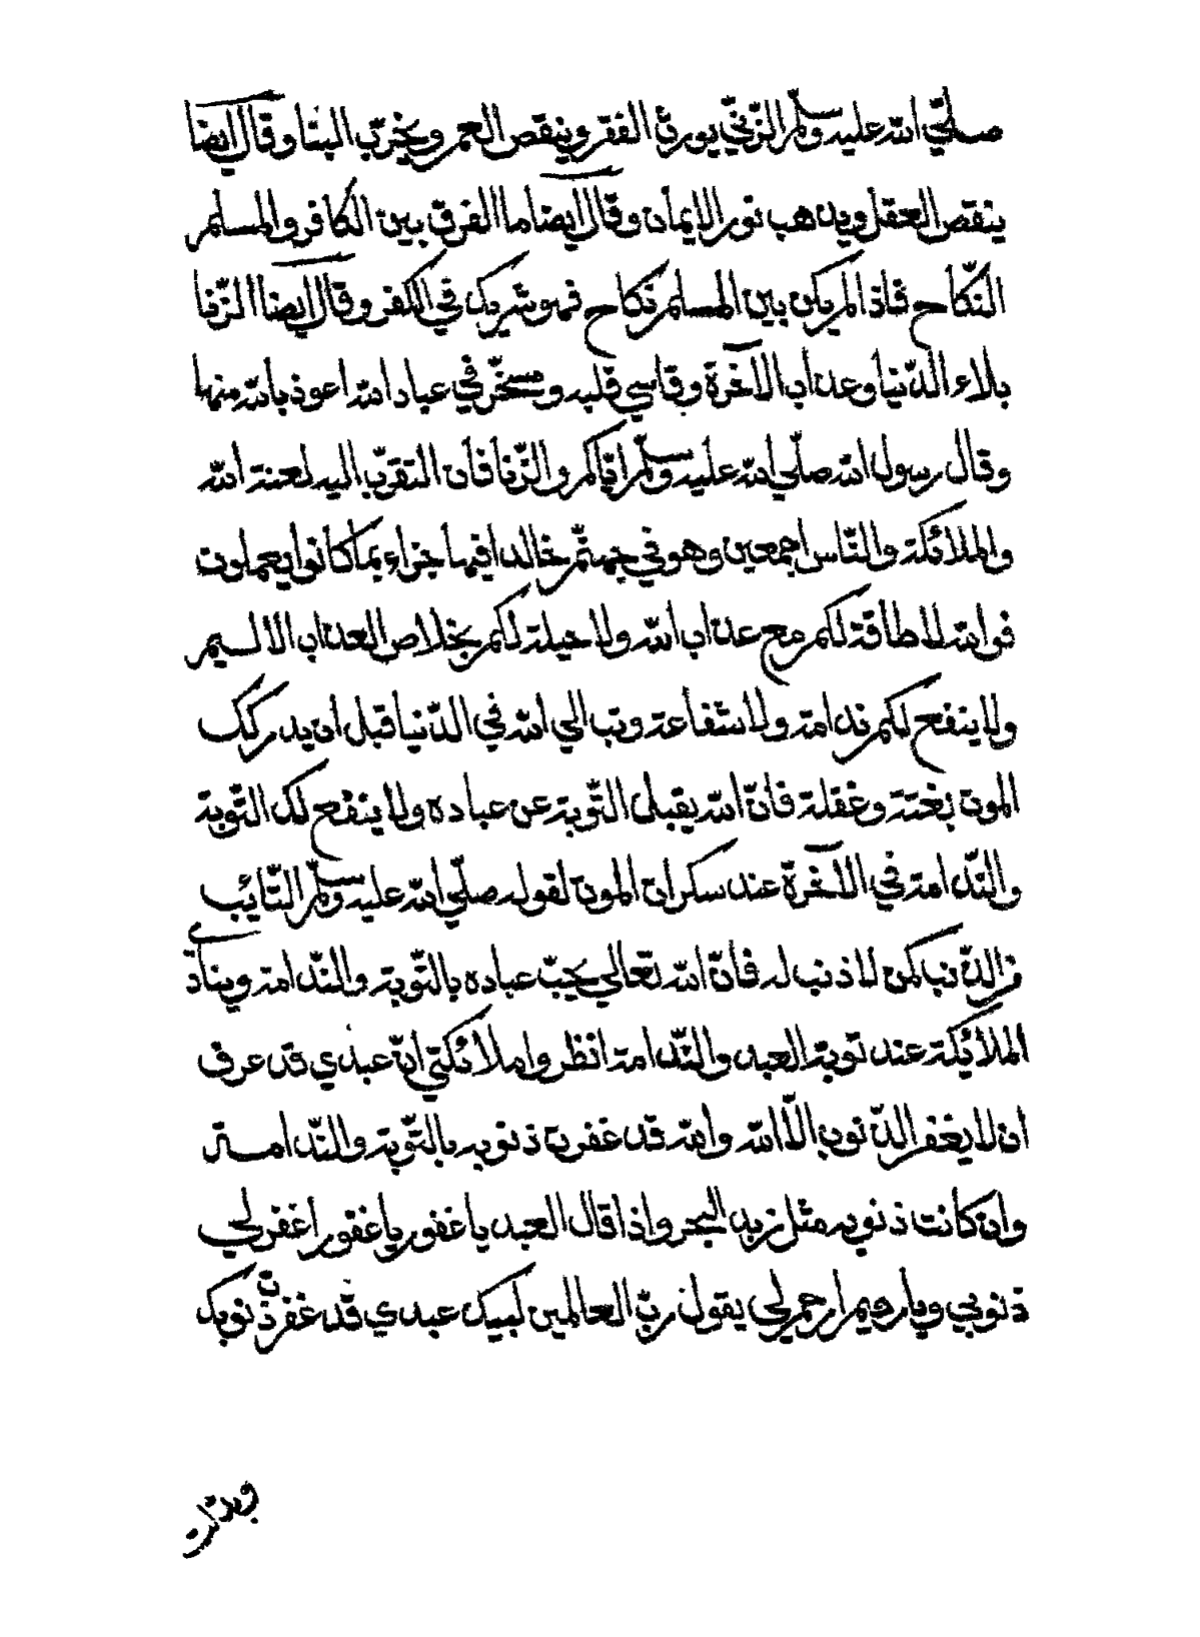 صلّي الله عليه وسلّم الزّني يورث الفقر وينقص العمر ويخرّب البنا وقال ايضا
ينقص العقل ويذهب نور الإيمان وقال ايضا ما الفرق بين الكافر والمسلم
النّكاح فاذا لم يكن بين المسلم نكاح فهو شريك في الكفر وقال ايضا الزّنا
بلاء الدّنيا وعذاب الآخرة وقاسي قلبه ومسخّر في عباد الله اعوذ بالله منها
وقال رسول الله صلّي الله عليه وسلّم ايّاكم والزّنا فأن التقرّب اليه لعنة الله
والملائكة والنّاس اجمعين وهو في جهنّم خالدا فيها جزاء بما كانوا يعملون
فو الله لا طاقة لكم مع عذاب الله ولا حيلة لكم بخلاص العذاب الاليم
ولا ينفع لكم ندامة ولا شفاعة وتب الي الله في الدّنيا قبل ان يدركك
الموت بغتة وغفلة فانّ الله يقبل التّوبة عن عباده ولا ينفع لك التّوبة
والنّدامة في الآخرة عند سكرات الموت لقوله صلّي الله عليه وسلّم التّائب
من الذّنب كمن لا ذنب له فانّ الله تعالي يحبّ عباده بالتّوبة والنّدامة وينادي
الملائكة عند توبة العبد والنّدامة انظروا ملائكتي انّ عبدي قد عرف
ان لا يغفر الذّنوب الّا الله والله قد غفرت ذنوبه بالتّوبة والنّدامة
وان كانت ذنوبه مثل زبد البحر واذا قال العبد يا غفور يا غفور اغفر لي
ذنوبي ويا رحيم ارحم لي يقول ربّ العالمين لبيك عبدي قد غفرت ذنوبك
وبدلت